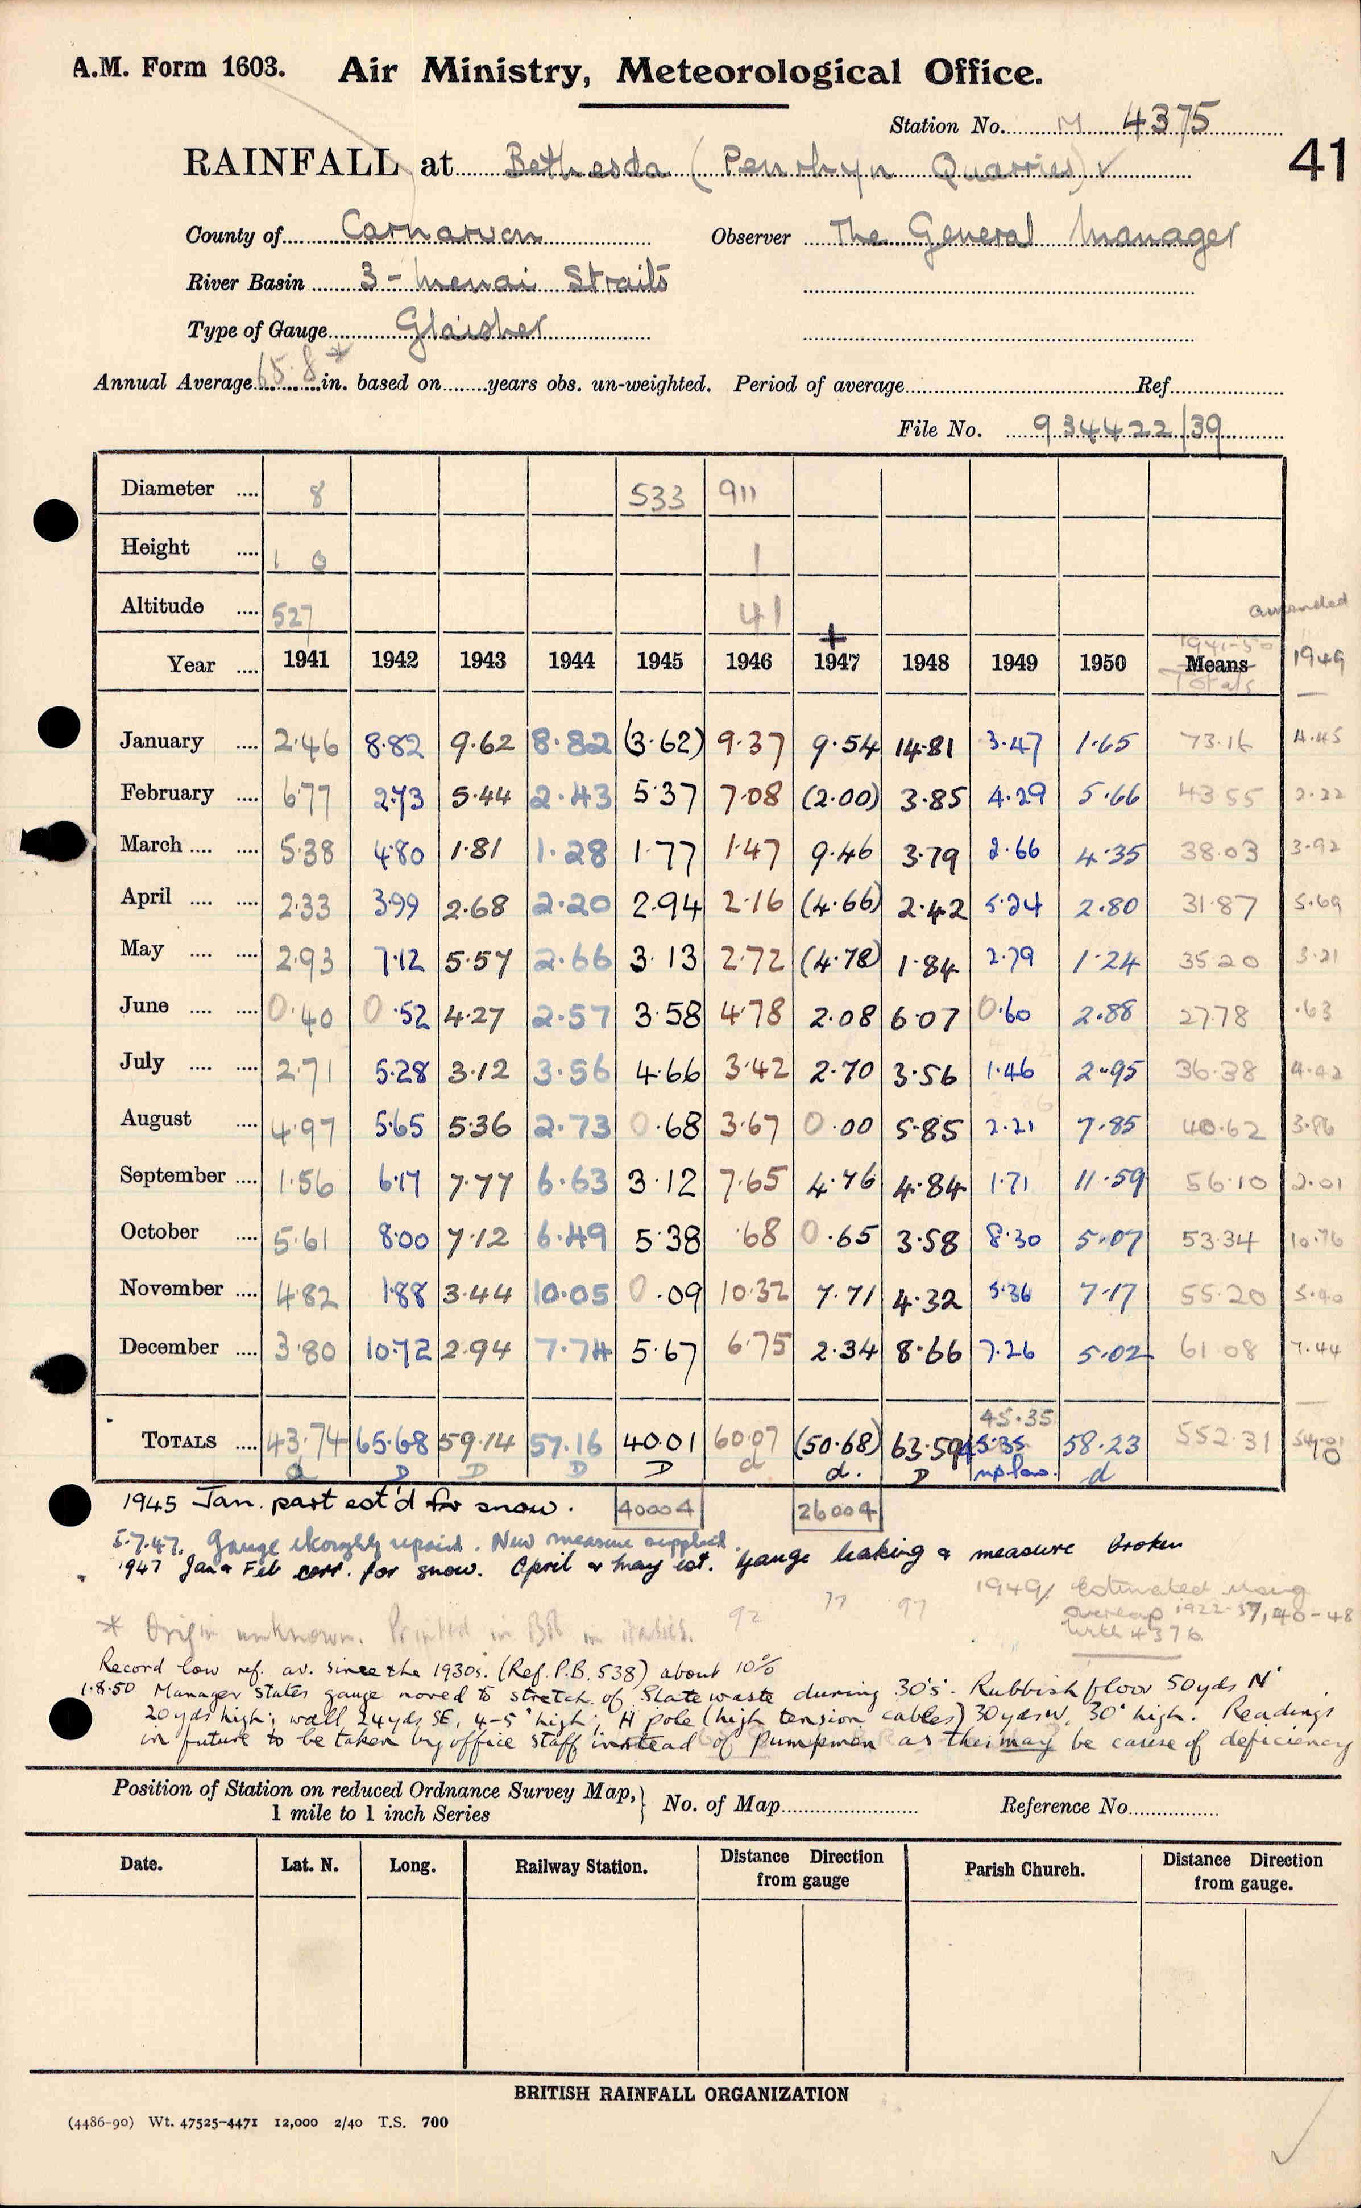 A.M. Form 1603. Air Ministry, Meteorological Office.
Station No. M 4375
41
RAINFALL at Bethesda (Penrhyn Quarries) ✓
County of Carnarvon Observer The General Manager
River Basin 3 - Menai Straits
Type of Gauge Glaisher
Annual Average 65.8* in. based on years obs. un-weighted. Period of average Ref.
File No. 934422/39
Diameter 8 533 911
Height 1 0 1
Altitude 527 41
amended
+ 1941-50
Year 1941 1942 1943 1944 1945 1946 1947 1948 1949 1950 Means 1949
Totals
January 2.46 8.82 9.62 8.82 (3.62) 9.37 9.54 14.81 3.47 1.65 73.16 4.45
February 6.77 2.73 5.44 2.43 5.37 7.08 (2.00) 3.85 4.29 5.66 43.55 2.22
March 5.38 4.80 1.81 1.28 1.77 1.47 9.46 3.79 2.66 4.35 38.03 3.92
April 2.33 3.99 2.68 2.20 2.94 2.16 (4.66) 2.42 5.24 2.80 31.87 5.69
May 2.93 7.12 5.57 2.66 3.13 2.72 (4.78) 1.84 2.79 1.24 35.20 3.21
June 0.40 0.52 4.27 2.57 3.58 4.78 2.08 6.07 0.60 2.88 27.78 .63
July 2.71 5.28 3.12 3.56 4.66 3.42 2.70 3.56 1.46 2.95 36.38 4.42
August 4.97 5.65 5.36 2.73 0.68 3.67 0.00 5.85 2.21 7.85 40.62 3.86
September 1.56 6.17 7.77 6.63 3.12 7.65 4.76 4.84 1.71 11.59 56.10 2.01
October 5.61 8.00 7.12 6.49 5.38 .68 0.65 3.58 8.30 5.07 53.34 10.76
November 4.82 1.88 3.44 10.05 0.09 10.32 7.71 4.32 5.36 7.17 55.20 5.40
December 3.80 10.72 2.94 7.74 5.67 6.75 2.34 8.66 7.26 5.02 61.08 7.44
45.35
TOTALS 43.74 65.68 59.14 57.16 40.01 60.07 (50.68) 63.59 45.35 58.23 552.31
d D D D D d d. D d
1945 Jan. part est'd for snow. 40004 26004
5.7.47. Gauge thoroughly repaired. New measure supplied.
1947 Jan & Feb corr. for snow. April & May est. Gauge leaking & measure broken
1949/ Estimated using
overlap 1922-37, 40-48
with 4376
92 77 97
* Origin unknown. Printed in BR in italics.
Record low ref. av. since the 1930s. (Ref. P.B. 538) about 10%
1.8.50 Manager states gauge moved to stretch of Slate waste during 30's. Rubbish floor 50yds N
20yds high; wall 24yds SE, 4-5' high; H pole (high tension cables) 30yds W, 30' high. Readings
in future to be taken by office staff instead of Pumpman as this may be cause of deficiency
Position of Station on reduced Ordnance Survey Map, 1 mile to 1 inch Series No. of Map Reference No.
Date. Lat. N. Long. Railway Station. Distance Direction from gauge Parish Church. Distance Direction from gauge.
BRITISH RAINFALL ORGANIZATION
(4486-90) Wt. 47525-4471 12,000 2/40 T.S. 700